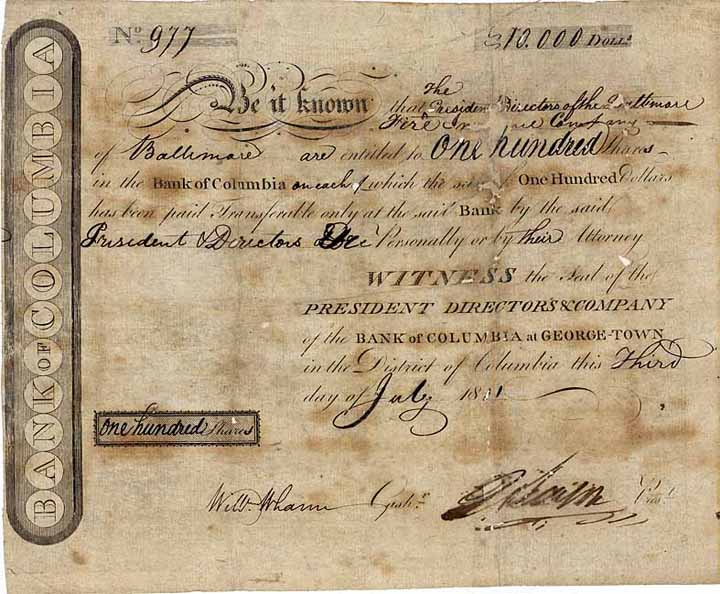 BANK OF COLUMBIA
No. 977 $10.000 DOLLs
Be it known that The President & Directors of the Baltimore
Fire Company
of Baltimore are entitled to One hundred Shares
in the Bank of Columbia on each of which the sum of One Hundred Dollars
has been paid Transferable only at the said Bank by the said
President & Directors &c Personally or by their Attorney
WITNESS the Seal of the
PRESIDENT DIRECTORS & COMPANY
of the BANK of COLUMBIA at GEORGE-TOWN
in the District of Columbia this Third
day of July 1811
One hundred Shares
Will. Whann Cashr. Prest.